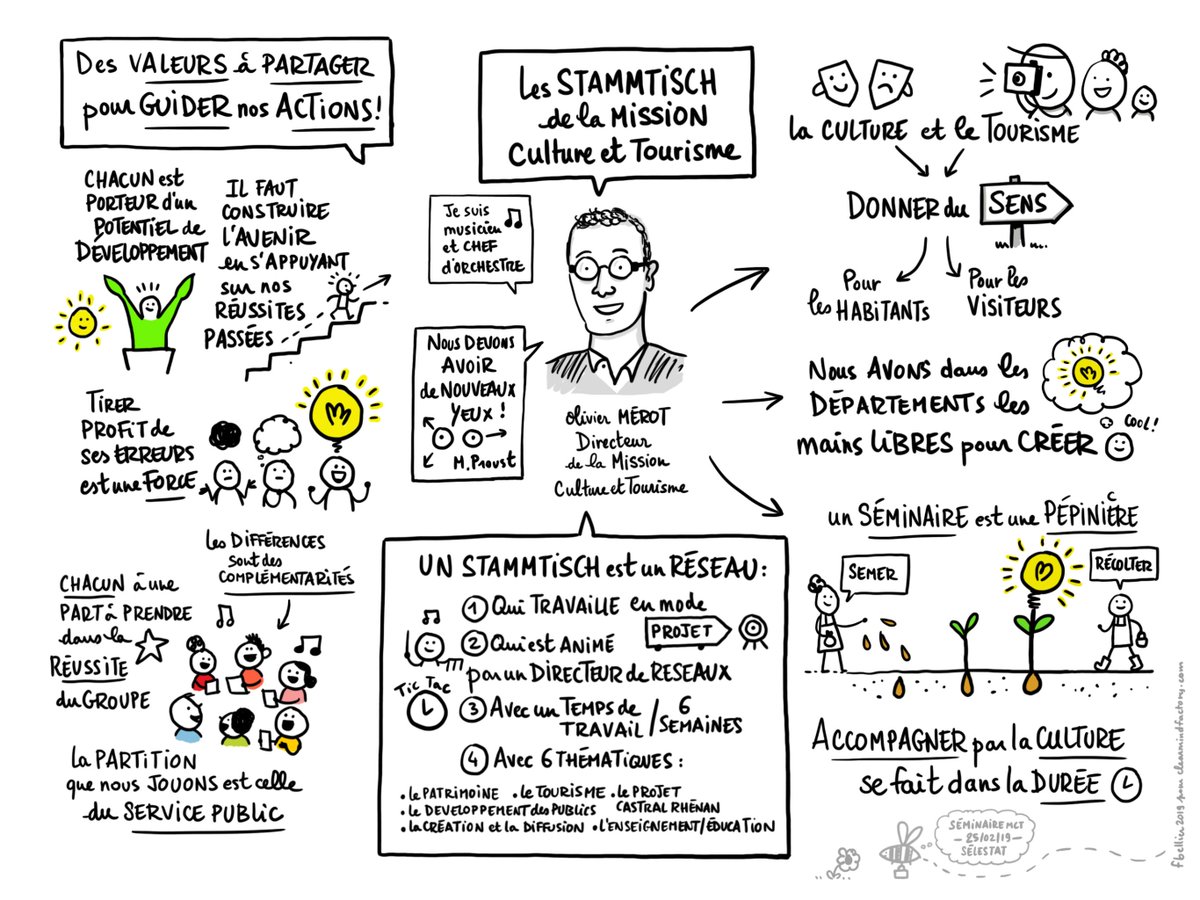 Des VALEURS à PARTAGER
pour GUIDER nos ACTIONS!
CHACUN est
PORTEUR d'un
POTENTIEL de
DÉVELOPPEMENT
IL FAUT
CONSTRUIRE
L'AVENIR
en S'APPUYANT
sur nos
RÉUSSITES
PASSÉES
TIRER
PROFIT de
ses ERREURS
est une FORCE
les DIFFÉRENCES
sont des
COMPLÉMENTARITÉS
CHACUN à une
PART à PRENDRE
dans la
RÉUSSITE
du GROUPE
la PARTITION
que nous JOUONS est celle
du SERVICE PUBLIC
Les STAMMTISCH
de la MISSION
Culture et Tourisme
Je suis
musicien
et CHEF
d'ORCHESTRE
NOUS DEVONS
AVOIR
de NOUVEAUX
YEUX!
M. Proust
Olivier MÉROT
Directeur
de la Mission
Culture et Tourisme
UN STAMMTISCH est un RÉSEAU:
1 Qui TRAVAILLE en mode
PROJET
2 Qui est ANIMÉ
par un DIRECTEUR de RESEAUX
Tic Tac
3 Avec un TEMPS de
TRAVAIL / 6
SEMAINES
4 Avec 6 THÉMATIQUES:
• le PATRIMOINE • le TOURISME • le PROJET
CASTRAL RHÉNAN
• le DEVELOPPEMENT des PUBLICS
• la CRÉATION et la DIFFUSION • L'ENSEIGNEMENT/ÉDUCATION
la CULTURE et le TOURISME
DONNER du SENS
Pour
les HABITANTS
Pour les
VISITEURS
Nous AVONS dans les
DÉPARTEMENTS les
mains LIBRES pour CRÉER
COOL!
un SÉMINAIRE est une PÉPINIÈRE
SEMER
RÉCOLTER
ACCOMPAGNER par la CULTURE
se fait dans la DURÉE
SÉMINAIRE MCT
- 25/02/19 -
SÉLESTAT
fbellier 2019 pour clearmindfactory.com